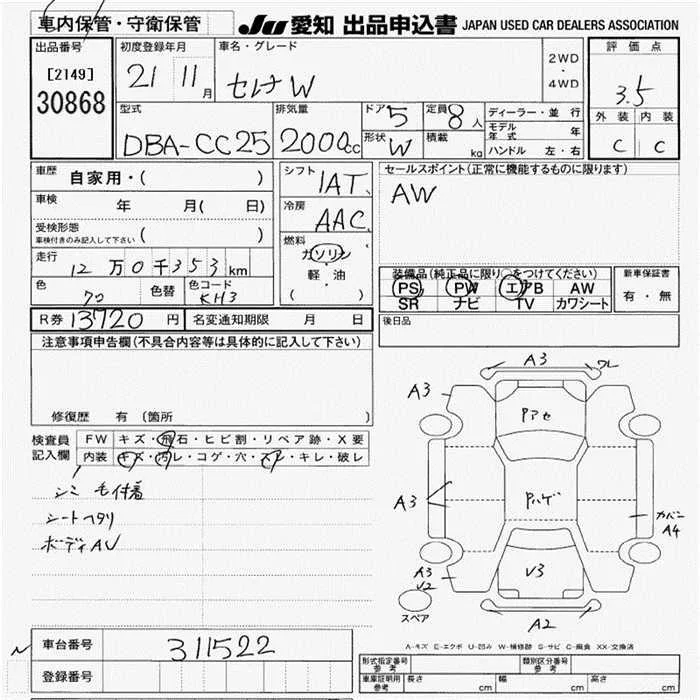 車内保管・守衛保管
JU 愛知 出品申込書 JAPAN USED CAR DEALERS ASSOCIATION
出品番号
[2149]
30868
初度登録年月
21 11月
車名・グレード
セレナW
2WD
・
4WD
評価点
3.5
外装 内装
C C
型式
DBA-CC25
排気量
2000cc
ドア 5
形状 W
定員 8人
積載 kg
ディーラー・並行
モデル年式 年
ハンドル 左・右
車歴 自家用・( )
車検 年 月( 日)
受検形態
車検付きのみ記入して下さい ( )
走行 12万0千353km
色 色替
色コード KH3
シフト
IAT
冷房
AAC
燃料
ガソリン
軽・油
( )
セールスポイント(正常に機能するものに限ります)
AW
装備品(純正品に限り○をつけてください)
PS PW エアB AW
SR ナビ TV カワシート
新車保証書
有・無
後日品
R券 13720円 名変通知期限 月 日
注意事項申告欄(不具合内容等は具体的に記入して下さい)
修復歴 有 (箇所 )
検査員記入欄
FW キズ・飛石・ヒビ割・リペア跡・X要
内装 キズ・汚レ・コゲ・穴・スレ・キレ・破レ
シミ 毛付着
シートヘタリ
ボディAU
A3 ワレ
A3
Pアセ
A3
Pハゲ
カバー
A4
A3
U2
V3
スペア
A2
A-キズ E-エクボ U-凹み W-補修跡 S-サビ C-腐食 XX-交換済
車台番号 311522
登録番号
形式指定番号 参考
類別区分番号 参考
車庫証明用 参考 長さ cm 幅 cm 高さ cm